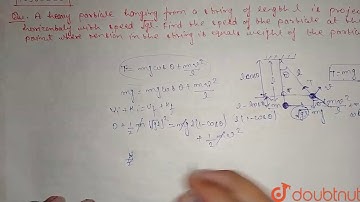 Que. A heavy particle hanging from a string of length l is projec
horizontally with speed √gl. Find the speed of the particle at the
point where tension in the string is equals weight of the particle
T = mg cos θ + mv²/l
mg = mg cos θ + mv²/l
0 + 1/2 m (√gl)² = mg l(1-cosθ)
+ 1/2 mv²
l cosθ
l(1-cosθ)
√gl
T-mg
doubtnut